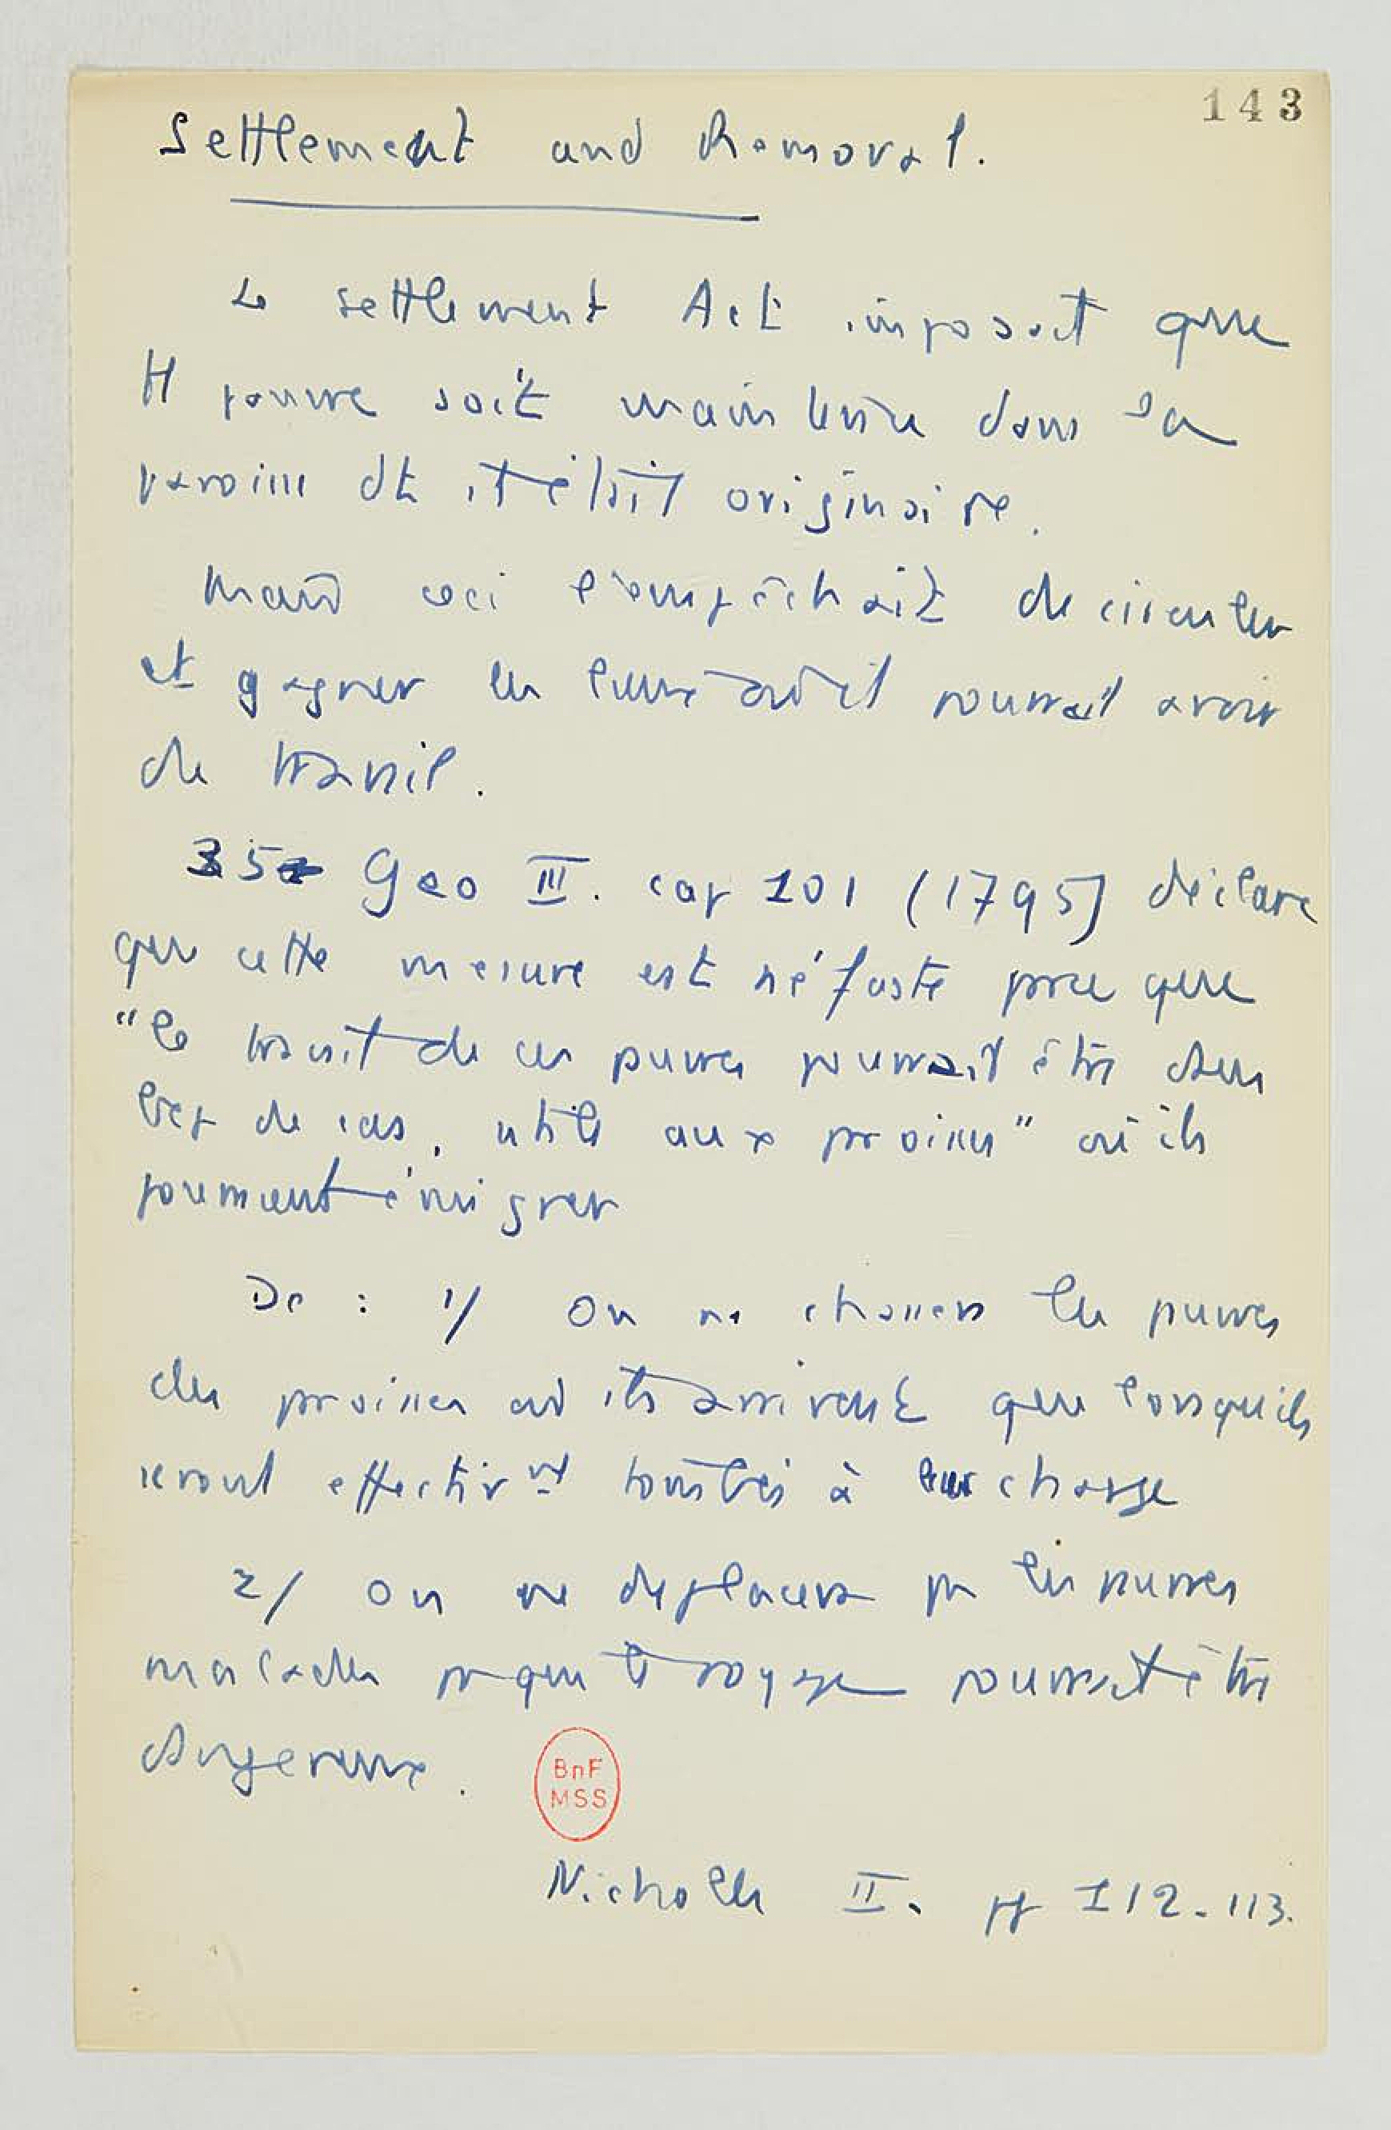 143
Settlement and Removal.
Le settlement Act imposait que
tt pauvre soit maintenu dans sa
paroisse dt il était originaire.
Mais ceci l'empêchait de circuler
et gagner les lieux où il pourrait avoir
du travail.
35 Geo III. cap 101 (1795) déclare
que cette mesure est néfaste parce que
"le travail de ces pauvres pourrait être dans
bcp de cas, utile aux paroisses" où ils
pourraient émigrer
Dc : 1/ On ne chassera les pauvres
des paroisses où ils arrivent que lorsqu'ils
seront effectivmt tombés à leur charge
2/ On ne déplacera pas les pauvres
malades pr qui le voyage pourrait être
dangereux.
BnF
MSS
Nicholls II. pp 112-113.